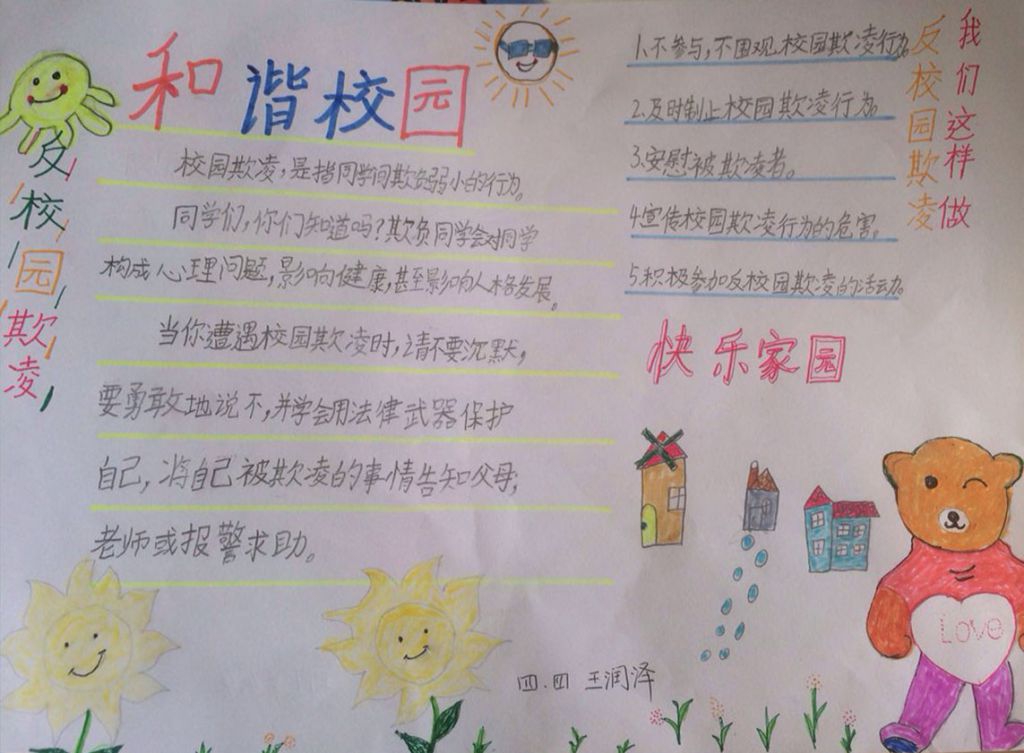 和谐校园
反校园欺凌
校园欺凌，是指同学间欺负弱小的行为。
同学们，你们知道吗？欺负同学会对同学
构成心理问题，影响健康，甚至影响人格发展。
当你遭遇校园欺凌时，请不要沉默，
要勇敢地说不，并学会用法律武器保护
自己，将自己被欺凌的事情告知父母，
老师或报警求助。
我们这样做
反校园欺凌
1.不参与，不围观校园欺凌行为。
2.及时制止校园欺凌行为。
3.安慰被欺凌者。
4.宣传校园欺凌行为的危害。
5.积极参加反校园欺凌的活动。
快乐家园
Love
四.四 王润泽